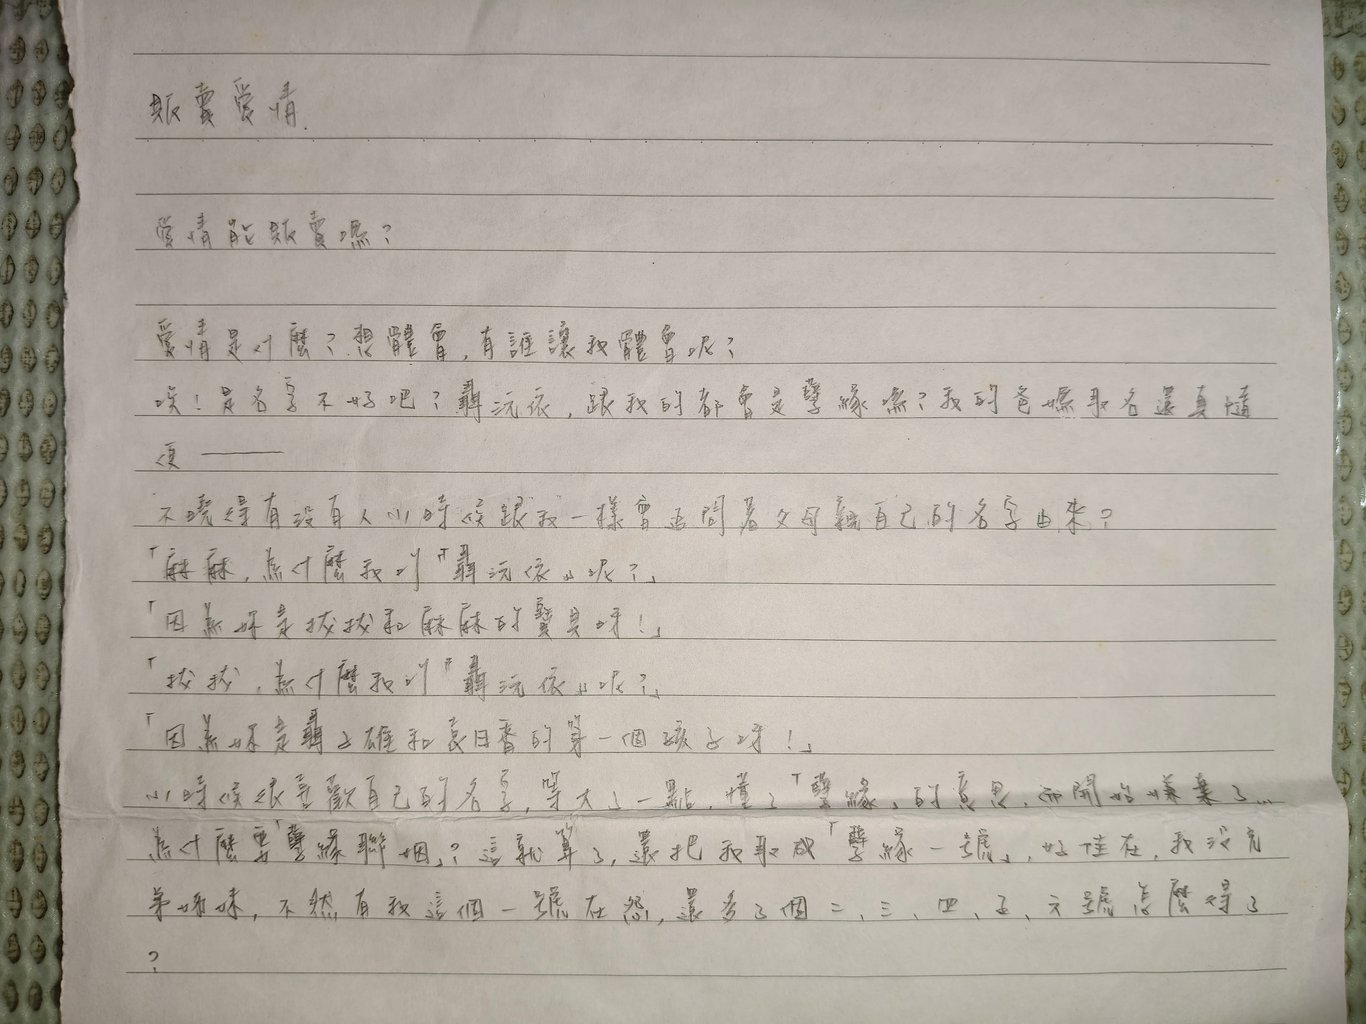 販賣愛情.
愛情能販賣嗎?
愛情是什麼?想體會,有誰讓我體會呢?
唉!是名字不好吧?聶沅依,跟我的都會是孽緣嗎?我的爸媽取名還真隨
便——
不曉得有沒有人小時候跟我一樣會追問著父母親自己的名字由來?
「麻麻,為什麼我叫『聶沅依』呢?」
「因為妳是拔拔和麻麻的寶貝呀!」
「拔拔,為什麼我叫『聶沅依』呢?」
「因為妳是聶子雄和袁日香的第一個孩子呀!」
小時候很喜歡自己的名字,等大了一點,懂了「孽緣」的意思,而開始嫌棄了...
為什麼要「孽緣聯姻」?這就算了,還把我取成「孽緣一號」,好佳在,我沒兄
弟姊妹,不然有我這個一號在怨,還多了個二、三、四、五、六號怎麼得了
?